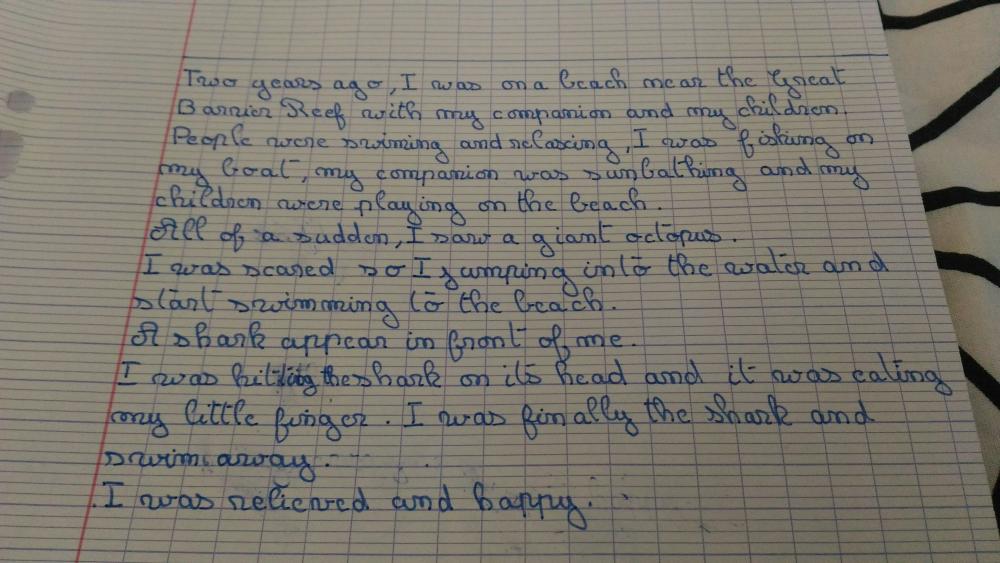 Two years ago, I was on a beach near the Great
Barrier Reef with my companion and my children.
People were swiming and relaxing, I was fishing on
my boat, my companion was sunbathing and my
children were playing on the beach.
All of a sudden, I saw a giant octopus.
I was scared so I jumping into the water and
start swimming to the beach.
A shark appear in front of me.
I was hitting the shark on its head and it was eating
my little finger. I was finally the shark and
swim away.
I was relieved and happy.